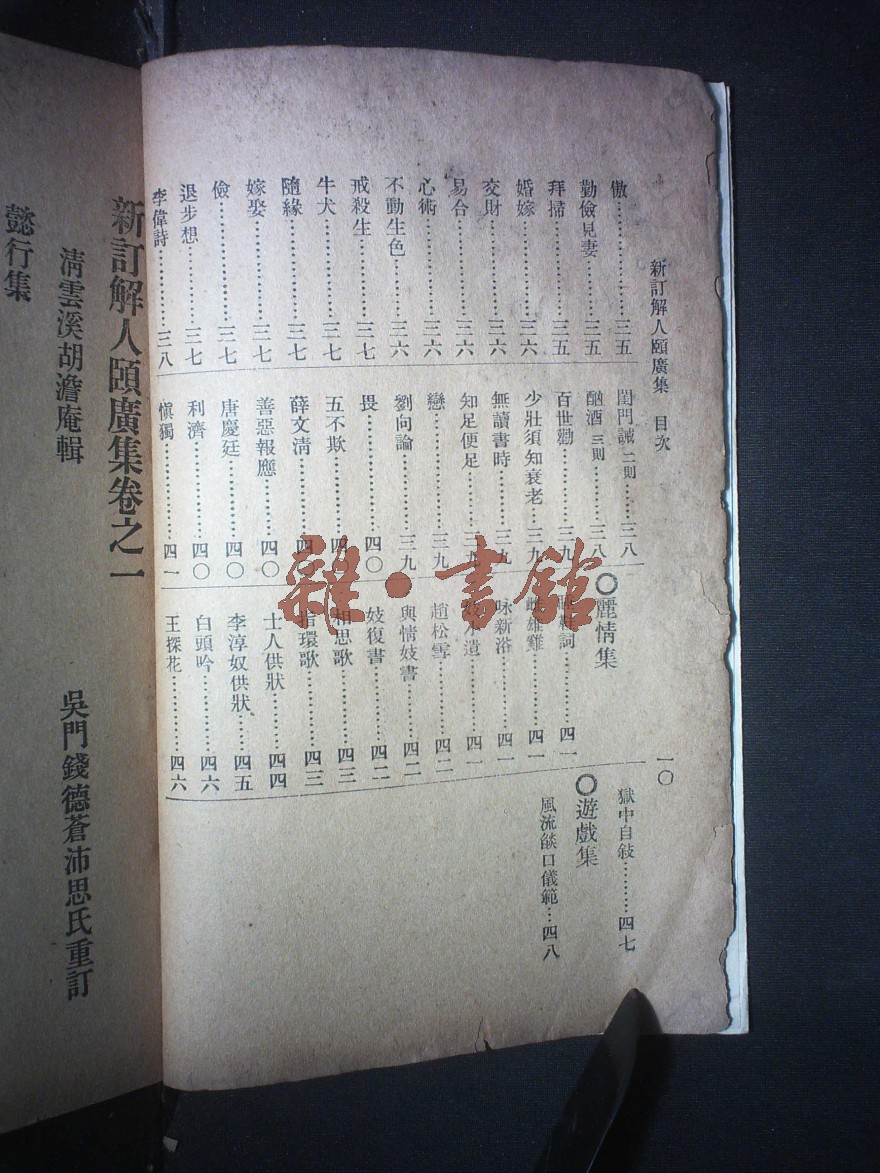 新訂解人頤廣集 目次 一〇
傲…………三五
勤儉見妻…………三五
拜掃…………三五
婚嫁…………三六
交財…………三六
易合…………三六
心術…………三六
不動生色…………三六
戒殺生…………三七
牛犬…………三七
隨緣…………三七
嫁娶…………三七
儉…………三七
退步想…………三七
李偉詩…………三八
閨門誡 二則…………三八
酗酒 三則…………三八
百世勸…………三九
少壯須知衰老…三九
無讀書時…………三九
知足便足…………三九
戀…………三九
劉向論…………三九
畏…………四〇
五不欺…………四〇
薛文清…………四〇
善惡報應…………四〇
唐慶廷…………四〇
利濟…………四〇
慎獨…………四一
〇麗情集
鞋詞…………四一
雌雄雞…………四一
咏新浴…………四一
水遺…………四一
趙松雪…………四二
與情妓書…………四二
妓復書…………四二
相思歌…………四三
指環歌…………四三
士人供狀…………四四
李淳奴供狀…………四五
白頭吟…………四六
王探花…………四六
獄中自敍…………四七
〇遊戲集
風流燄口儀範…四八
新訂解人頤廣集卷之一
清雲溪胡澹庵輯
吳門錢德蒼沛思氏重訂
懿行集
雜·書館